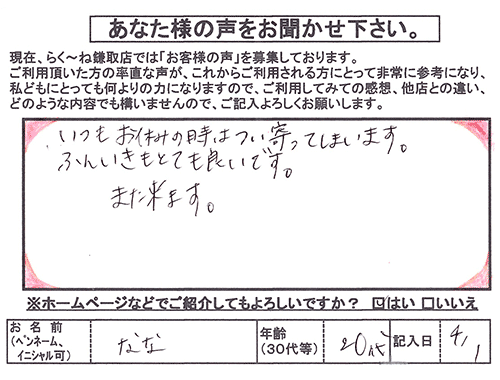 あなた様の声をお聞かせ下さい。
現在、らく～ね鎌取店では「お客様の声」を募集しております。
ご利用頂いた方の率直な声が、これからご利用される方にとって非常に参考になり、
私どもにとっても何よりの力になりますので、ご利用してみての感想、他店との違い、
どのような内容でも構いませんので、ご記入よろしくお願いします。
いつもお休みの時はつい寄ってしまいます。
ふんいきもとても良いです。
また来ます。
※ホームページなどでご紹介してもよろしいですか? ☑はい □いいえ
お名前
(ペンネーム、
イニシャル可)
なな
年齢
(30代等)
20代
記入日
4/1